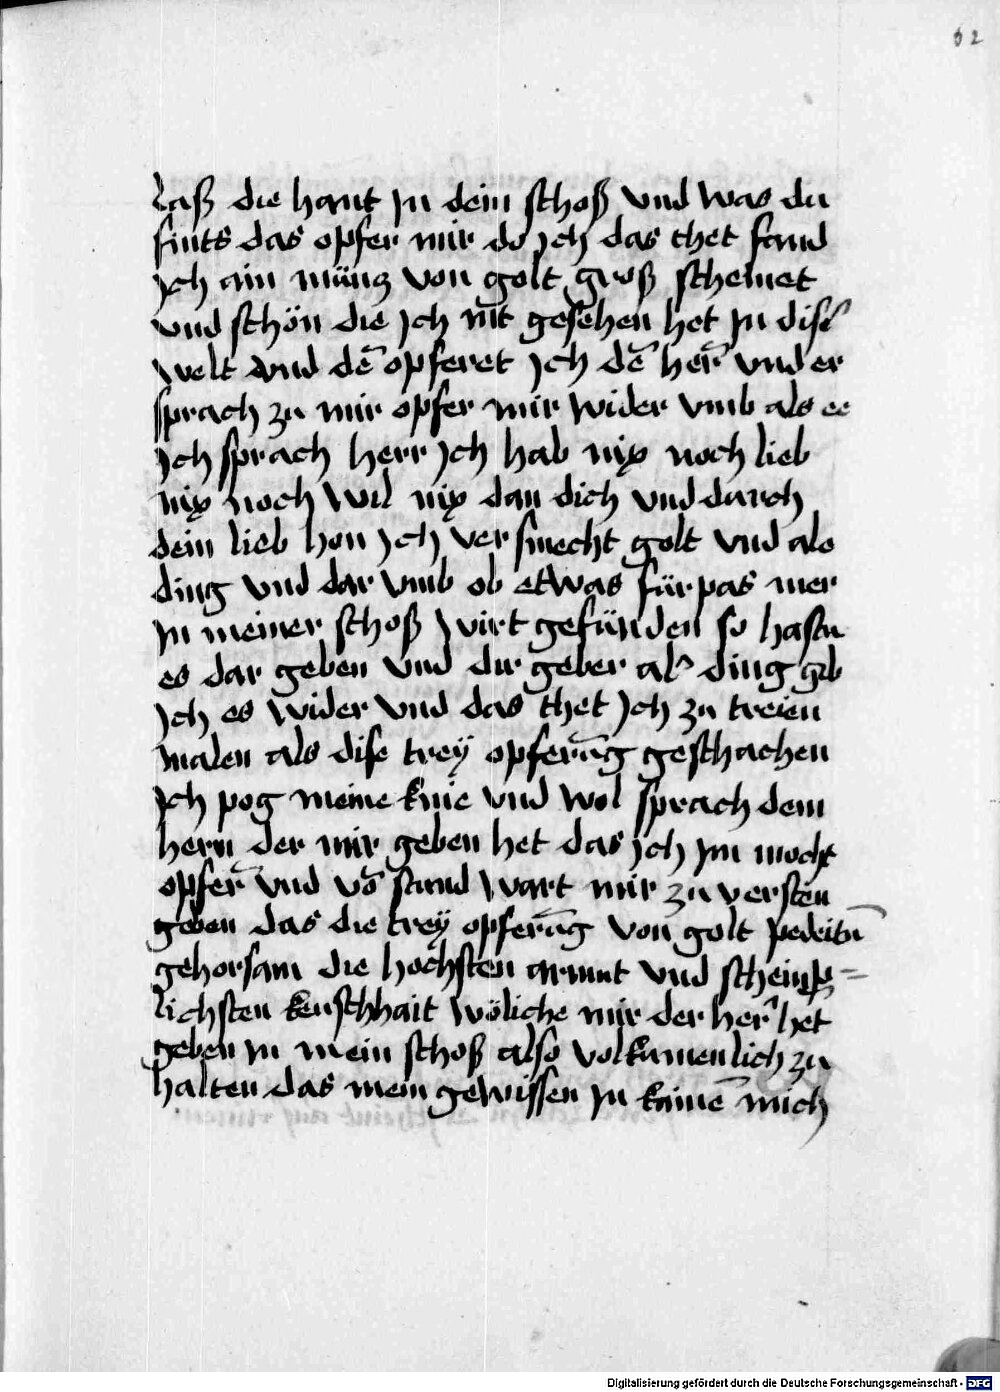 62
laß die hant In dein schoß vnd was du
fints das opfer mir do Ich das thet fand
Ich ain münz von golt groß scheinet
vnd schön die Ich nit gesehen het In diser
welt vnd dē opferet Ich dē her̄ vnd er
sprach zu mir opfer mir wider vmb als ee
Ich sprach herr Ich hab nix noch lieb
nix noch wil nix dan dich vnd durch
dein lieb hon Ich ver smecht golt vnd als
ding vnd dar vmb ob etwas fürpas mer
In meiner schoß wirt gefünden so hastu
es dar geben vnd dir geber al ding gib
Ich es wider vnd das thet Ich zu treien
malen als dise trey opferūg geschachen
Ich pog meine knie vnd wol sprach dem
hern der mir geben het das Ich Im mocht
opfer̄ vnd vō stund wart mir zu versten
geben das die trey opferūg von golt pedeitn̄
gehorsam die hochsten armut vnd scheinp
lichsten keuschhait wöliche mir der her̄ het
geben In mein schoß also volkumenlich zu
halten das mein gewissen In kainē mich
Digitalisierung gefördert durch die Deutsche Forschungsgemeinschaft - DFG